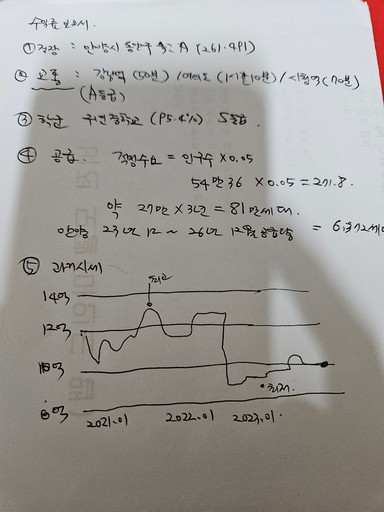 수익률 보고서.
① 직장 : 안양시 동안구 A (261.491)
② 교통 : 강남역 (50분) / 여의도 (1시간10분) / 시청역 (70분)
(A등급)
③ 학군 귀인중학교 (95.4%) S등급.
④ 공급. 적정수요 = 인구수 × 0.05
54만36 × 0.05 = 27.8.
약 27만 × 3년 = 81만세대.
안양 23년 12 ~ 26년 12월 공급량 =
⑤ 과거시세
최고
14억
12억
10억
최저.
8억
2021.01 2022.01 2023.01.